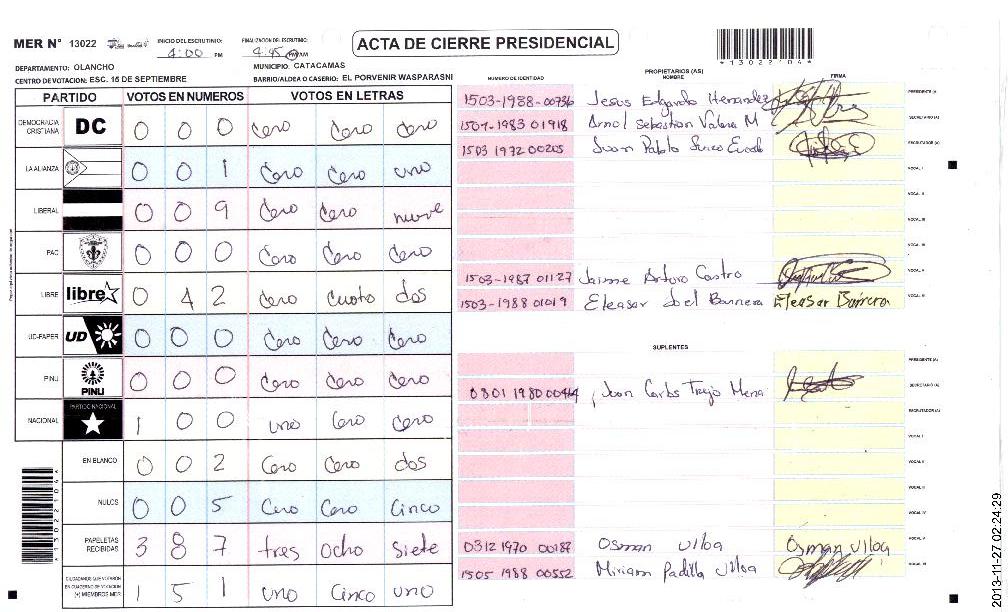 MER N° 13022 INICIO DEL ESCRUTINIO: 4:00 PM FINALIZACION DEL ESCRUTINIO: 4:45 PM/AM ACTA DE CIERRE PRESIDENCIAL
DEPARTAMENTO: OLANCHO MUNICIPIO: CATACAMAS
CENTRO DE VOTACION: ESC. 15 DE SEPTIEMBRE BARRIO/ALDEA O CASERIO: EL PORVENIR WASPARASNI
PARTIDO VOTOS EN NUMEROS VOTOS EN LETRAS
DEMOCRACIA CRISTIANA DC 0 0 0 Cero Cero Cero
LA ALIANZA 0 0 1 Cero Cero uno
LIBERAL 0 0 9 Cero Cero nueve
PAC 0 0 0 Cero Cero Cero
LIBRE libre 0 4 2 cero Cuatro dos
UD-FAPER UD 0 0 0 Cero Cero Cero
PINU PINU 0 0 0 Cero Cero Cero
NACIONAL PARTIDO NACIONAL 1 0 0 uno Cero Cero
EN BLANCO 0 0 2 Cero Cero dos
NULOS 0 0 5 Cero Cero Cinco
PAPELETAS RECIBIDAS 3 8 7 tres ocho siete
CIUDADANOS QUE VOTARON EN CUADERNO DE VOTACION (+) MIEMBROS MER 1 5 1 uno Cinco uno
*13022104*
PROPIETARIOS (AS)
NUMERO DE IDENTIDAD NOMBRE FIRMA
1503-1988-00736 Jesus Edgardo Hernandez PRESIDENTE (A)
1501-1983 01918 Arnol Sebastian Valera M SECRETARIO (A)
1503 1972 00205 Juan Pablo ESCRUTADOR (A)
VOCAL I
VOCAL II
VOCAL III
VOCAL IV
1503-1987 01127 Jaime Arturo Castro VOCAL V
1503-1988 01019 Eleasar Joel Barrera Eleasar Barrera VOCAL VI
SUPLENTES
PRESIDENTE (A)
0801 1980 00464 Juan Carlos Trejo Mena SECRETARIO (A)
ESCRUTADOR (A)
VOCAL I
VOCAL II
VOCAL III
VOCAL IV
0312 1970 00187 Osman Ulloa Osman Ulloa VOCAL V
1505 1988 00552 Miriam Padilla Ulloa VOCAL VI
*13022104*
2013-11-27 02:24:29